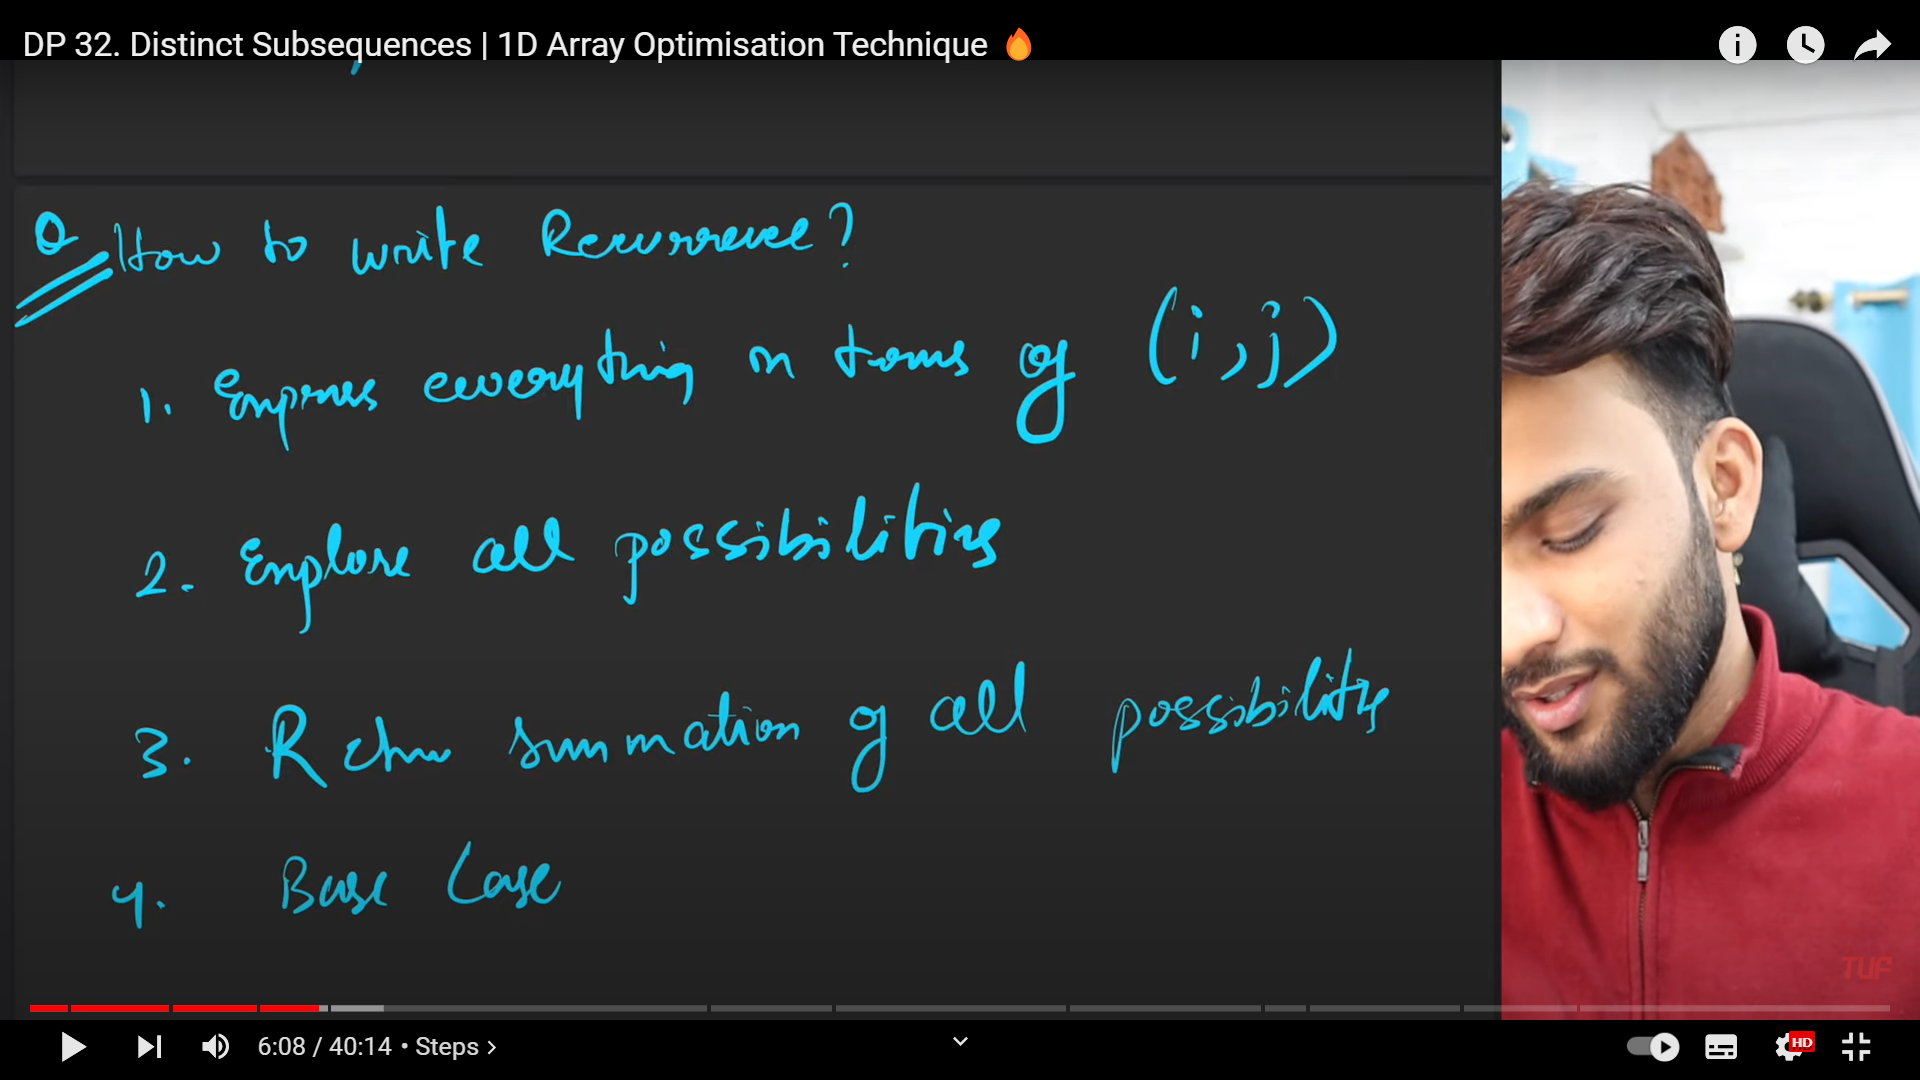 DP 32. Distinct Subsequences | 1D Array Optimisation Technique 🔥
Q How to write Recurrence?
1. Express everything in terms of (i,j)
2. Explore all possibilities
3. Return summation of all possibilities
4. Base Case
TUF
6:08 / 40:14 • Steps >
HD